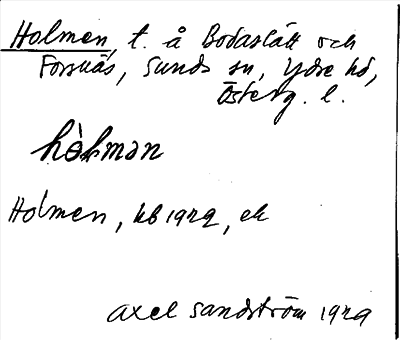 Holmen, t. å Bodaslätt och
Forsnäs, Sunds sn, Ydre hd,
Österg. l.
hòlmən
Holmen, hb 1929, ek
Axel Sandström 1929